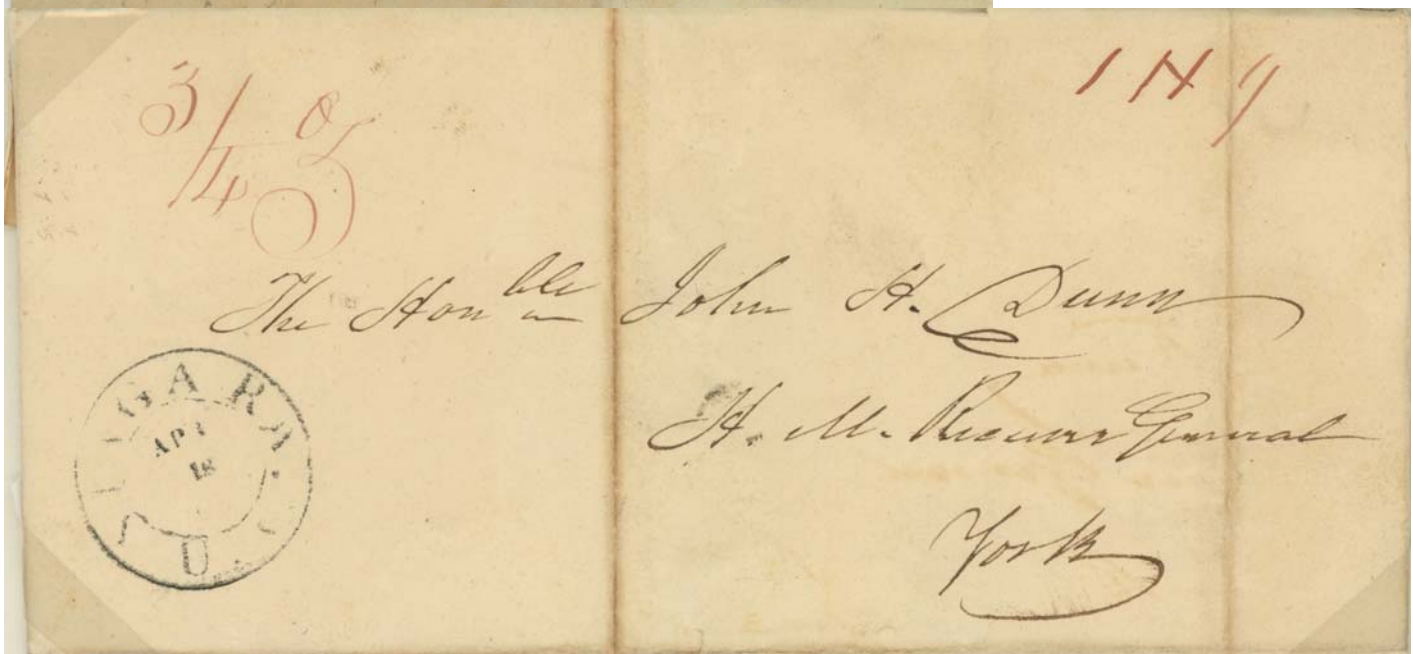 3/4 oz
1 N 9
The Honble John H. Dunn
H. M. Receiver General
York
NIAGARA. U.C.
APR
18